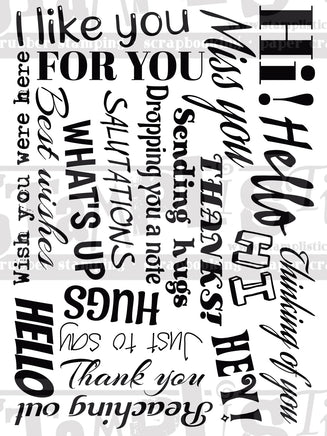 I like you
FOR YOU
Hi!
Miss you
Hello
Wish you were here
Best wishes
WHAT'S UP
SALUTATIONS
Dropping you a note
Sending hugs
THANKS!
HI
Thinking of you
HUGS
HELLO
Just to say
HEY!
Thank you
Reaching out